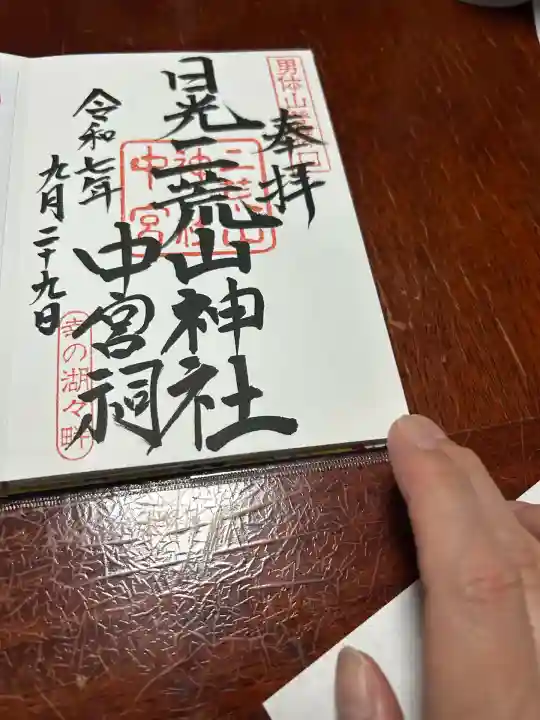 男体山
奉拝
日光二荒山神社
中宮祠
二荒山
神社
中宮
令和七年
九月二十九日
幸の湖々畔